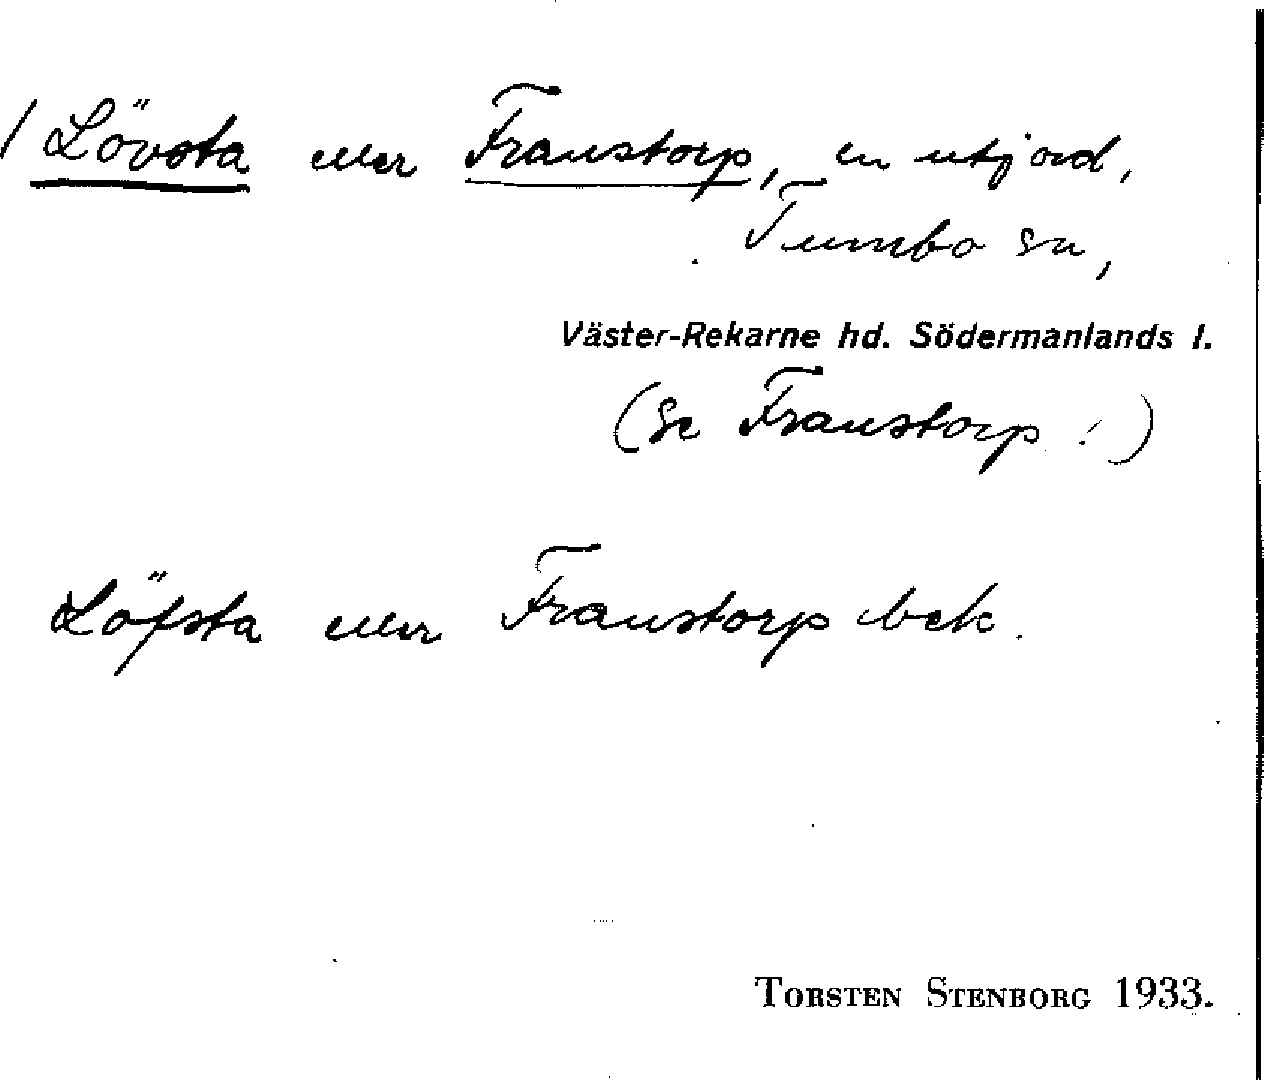 / Lövsta eller Franstorp, en utjord,
Tumbo sn,
Väster-Rekarne hd. Södermanlands l.
(Se Franstorp !)
Löfsta eller Franstorp bek.
TORSTEN STENBORG 1933.